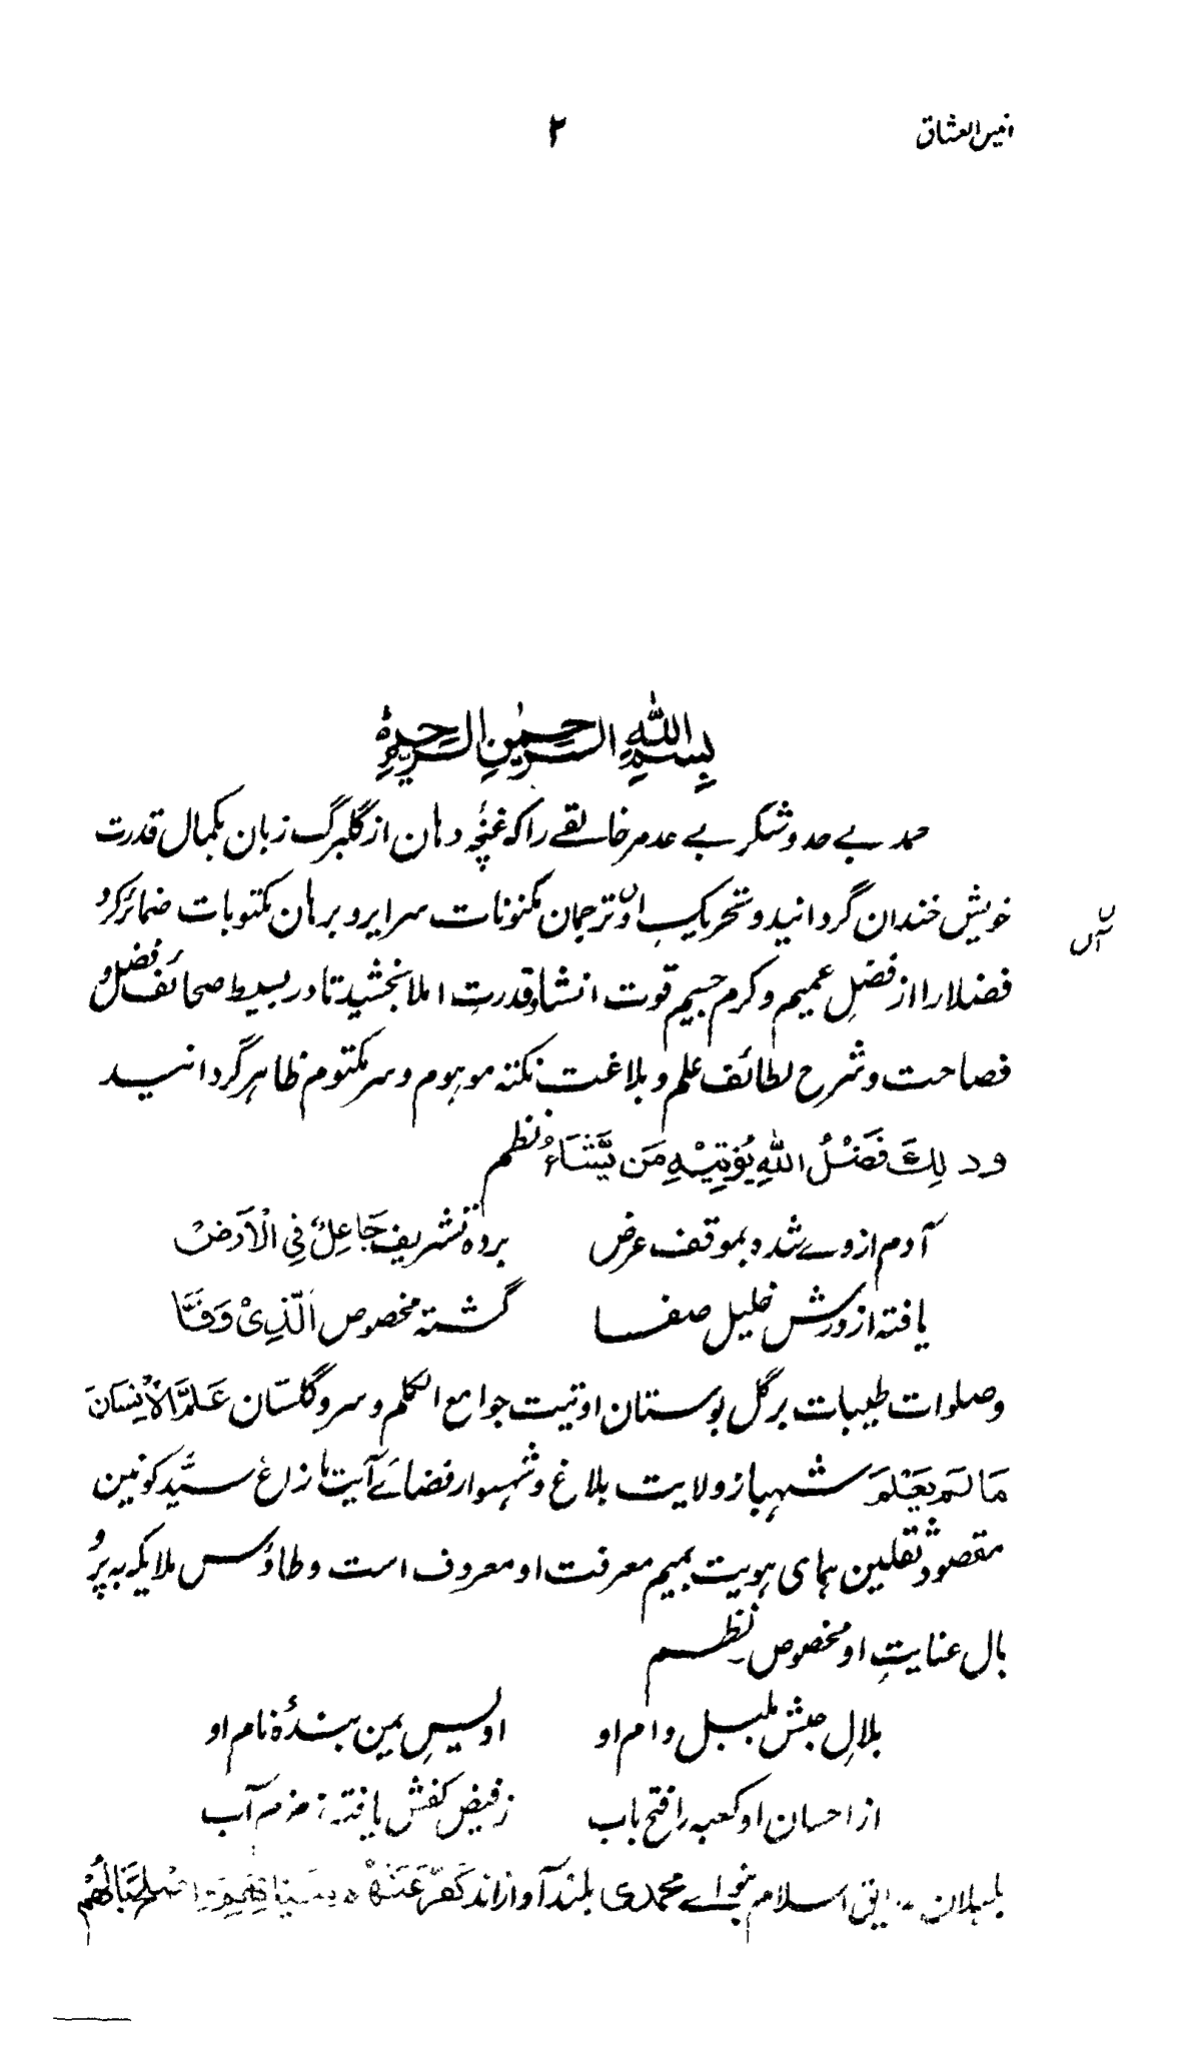 انیس العشاق
۲
بِسْمِ اللهِ الرَّحْمٰنِ الرَّحِيْمِ
حمد بے حد و شکر بے عد مر خالقے را کہ غنچۂ دہان از گلبرگ زبان بکمال قدرت
خویش خندان گردانید و تحریکِ اوں ترجمان مکنونات سرایر و برہان مکتوبات ضمائر کرد
ں آں
فضلا را از فضلِ عمیم و کرم جسیم قوت انشا و قدرتِ املا بخشید تا در بسیط صحائف فضل و
فصاحت و شرح لطائف علم و بلاغت نکتہ موہوم و سر مکتوم ظاہر گردانید
و ذٰلِكَ فَضْلُ اللهِ يُؤْتِيْهِ مَن يَّشَاءُ نظم
آدم از وے شدہ بموقف عرض بردہ تشریف جَاعِلٌ فِي الْاَرْضْ
یافتہ از درش خلیل صفا گشتہ مخصوص اَلَّذِيْ وَفّٰی
و صلوات طیبات بر گل بوستان اوتیت جوامع الکلم و سرو گلستان عَلَّمَ الْاِنْسَانَ
مَا لَمْ يَعْلَمْ شہباز ولایت بلاغ و شہسوار فضائے آیت ما زاغ سیّد کونین
مقصود ثقلین ہمای ہویت بمیم معرفت او معروف است و طاؤس ملایکہ بہ پر و
بال عنایتِ او مخصوص ۔ نظم
بلالِ حبش بلبل دام او اویسِ یمن بندۂ نام او
از احسان او کعبہ را فتح باب ز فیض کفش یافتہ زمزم آب
بلبلان اسلام بنواے محمدی بلند آواز اند كَفَّرَ عَنْهُمْ سَيِّاٰتِهِمْ وَ اَصْلَحَ بَالَهُمْ